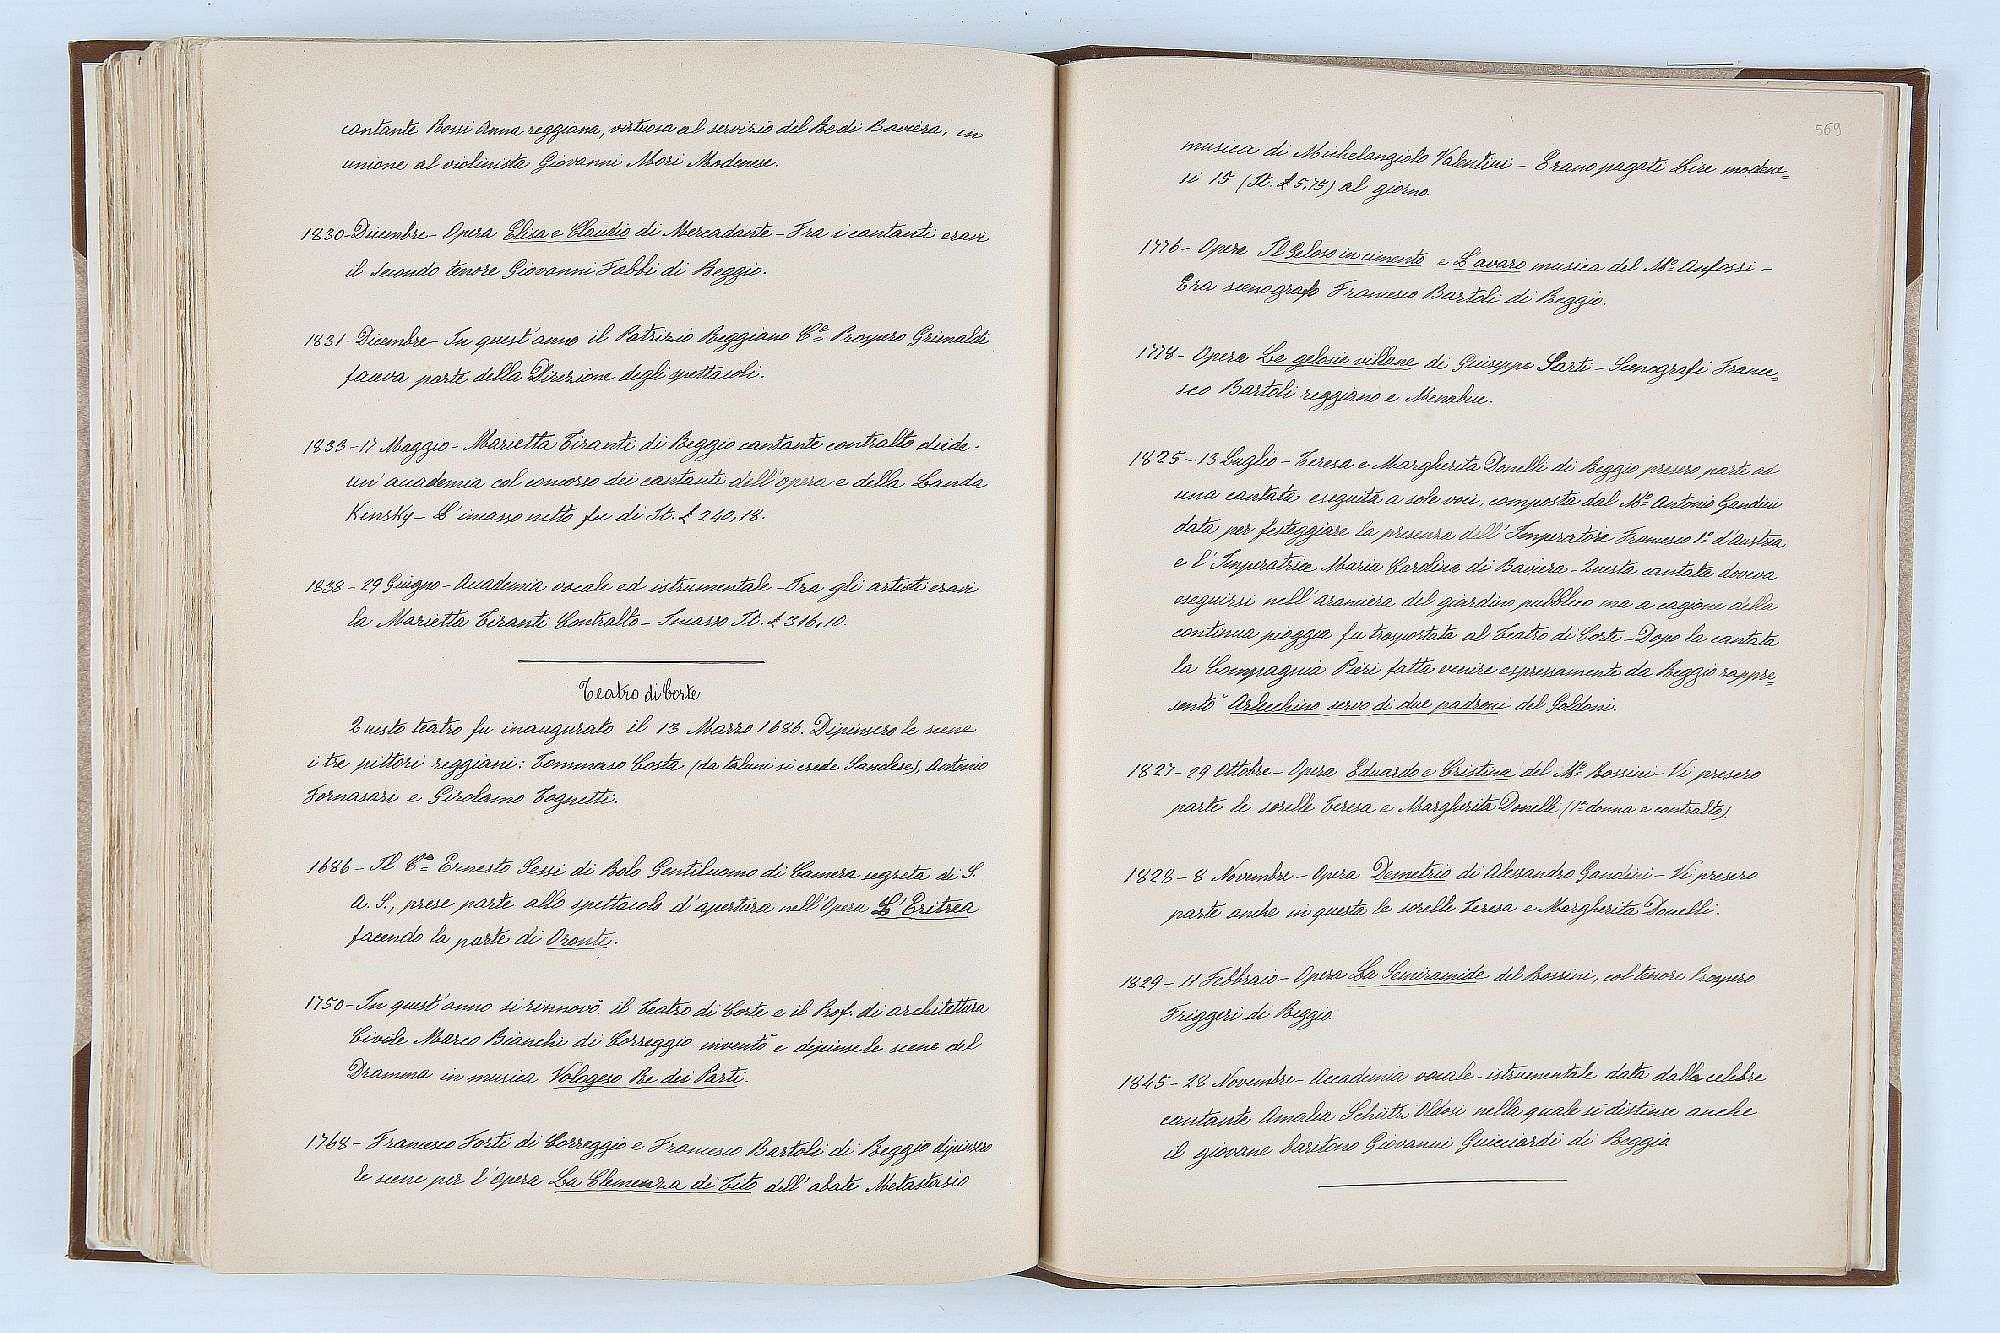 cantante Rossi Anna reggiana, virtuosa al servizio del Re di Baviera, in
unione al violinista Giovanni Mori Modenese.
1830-Dicembre- Opera Elisa e Claudio di Mercadante - Fra i cantanti eravi
il secondo tenore Giovanni Fabbi di Reggio.
1831 Dicembre- In quest'anno il Patrizio Reggiano Cte Prospero Grimaldi
faceva parte della Direzione degli spettacoli.
1833-17 Maggio- Marietta Tiranti di Reggio cantante contralto diede
un'accademia col concorso dei cantanti dell'opera e della Banda
Kinsky- L'incasso netto fu di It. £ 240,18.
1838-29 Giugno- Accademia vocale ed istrumentale- Fra gli artisti eravi
la Marietta Tiranti Contralto- Incasso It. £ 316,10.
Teatro di Corte
Questo teatro fu inaugurato il 13 Marzo 1686. Dipinsero le scene
i tre pittori reggiani: Tommaso Costa (da taluni si crede Sandese), Antonio
Fornasari e Girolamo Tognetti.
1686- Il Cte Ernesto Sessi di Rolo Gentiluomo di Camera segreta di S.
A. S., prese parte allo spettacolo d'apertura nell'Opera L'Eritrea
facendo la parte di Oronte.
1750-In quest'anno si rinnovò il Teatro di Corte e il Prof. di architettura
Civile Marco Bianchi di Correggio inventò e dipinse le scene del
Dramma in musica Vologeso Re dei Parti.
1768- Francesco Forti di Correggio e Francesco Bartoli di Reggio dipinsero
le scene per l'opera La Clemenza di Tito dell'abate Metastasio
569
musica di Michelangiolo Valentini- Erano pagati Lire modene=
si 15 (It. £ 5.75) al giorno.
1776- Opera Il Geloso in cimento e L'avaro musica del Mo. Anfossi-
Era scenografo Francesco Bartoli di Reggio.
1778- Opera Le gelosie villane di Giuseppe Sarti- Scenografi France=
sco Bartoli reggiano e Menabue.
1825-13 Luglio- Teresa e Margherita Donelli di Reggio presero parte ad
una cantata eseguita a sole voci, composta dal Mo. Antonio Gandini
data per festeggiare la presenza dell'Imperatore Francesco 1o. d'Austria
e l'Imperatrice Maria Carolina di Baviera- Questa cantata doveva
eseguirsi nell'aranciera del giardino pubblico ma a cagione della
continua pioggia fu trasportata al Teatro di Corte- Dopo la cantata
la Compagnia Pieri fatta venire espressamente da Reggio rappre=
sentò Arlecchino servo di due padroni del Goldoni.
1827-29 Ottobre- Opera Eduardo e Cristina del Mo. Rossini- Vi presero
parte le sorelle Teresa e Margherita Donelli (1a. donna e contralto).
1828-8 Novembre- Opera Demetrio di Alessandro Gandini- Vi presero
parte anche in questa le sorelle Teresa e Margherita Donelli.
1829-11 Febbraio- Opera La Semiramide del Rossini, col tenore Prospero
Friggeri di Reggio
1845-28 Novembre- Accademia vocale-istrumentale data dalla celebre
cantante Amalia Schütz Oldosi nella quale si distinse anche
il giovane baritono Giovanni Guicciardi di Reggio